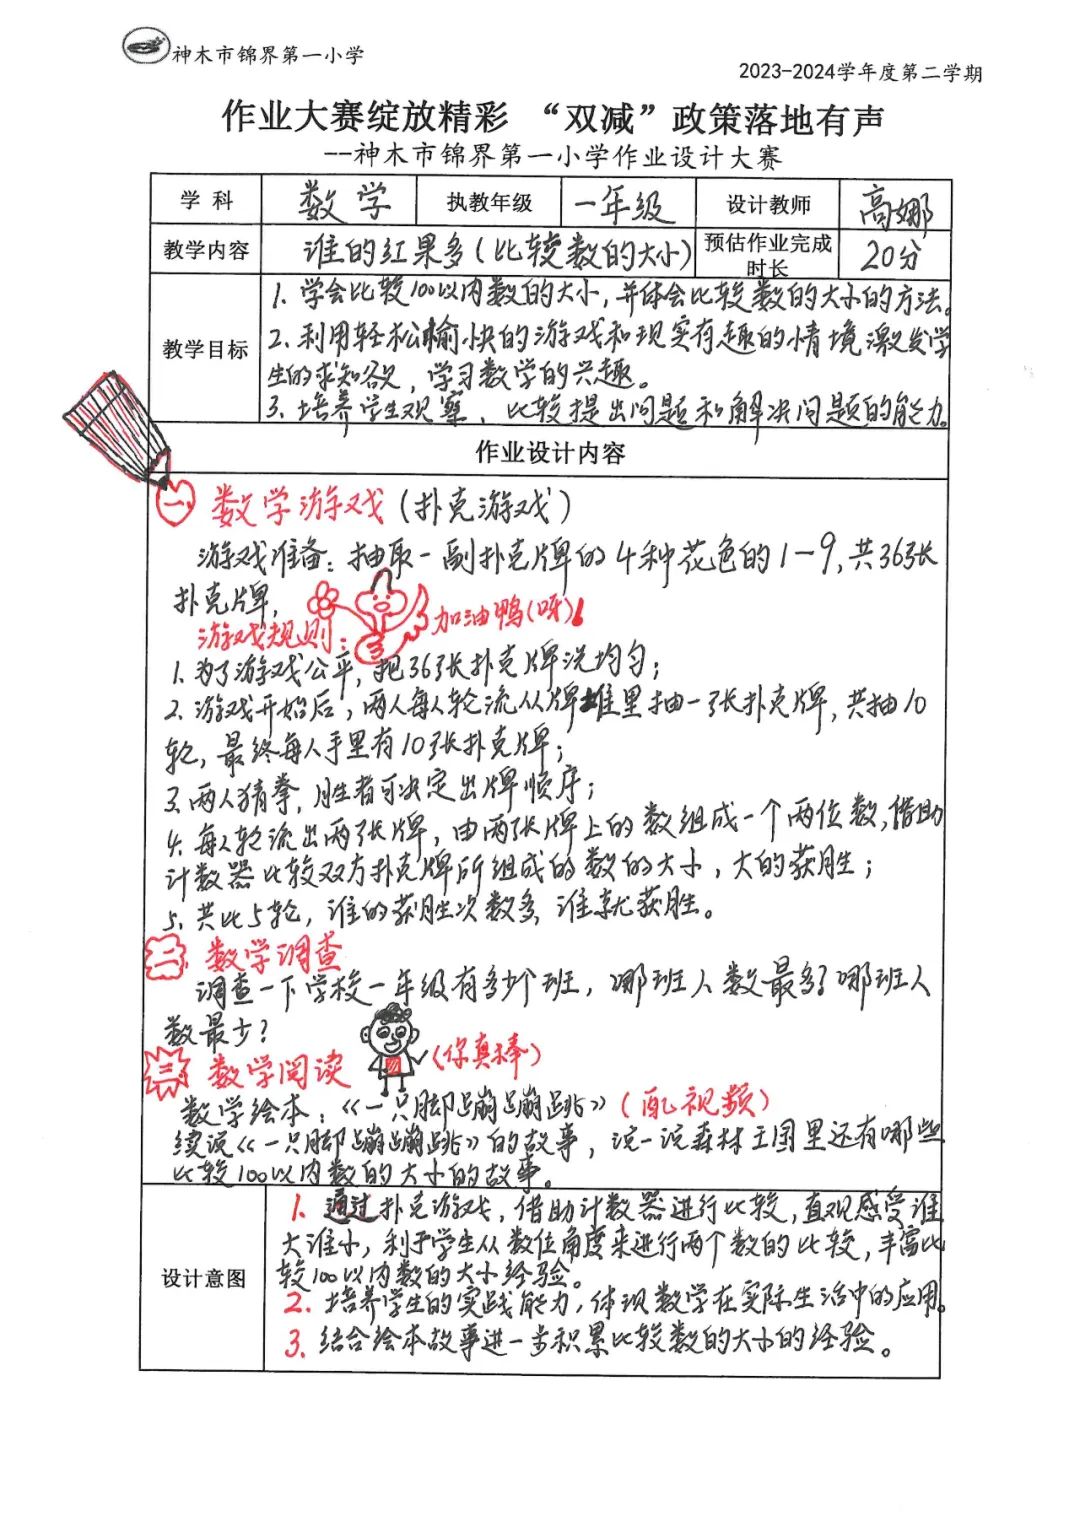 神木市锦界第一小学
2023-2024学年度第二学期
作业大赛绽放精彩 “双减”政策落地有声
--神木市锦界第一小学作业设计大赛
学 科 数学 执教年级 一年级 设计教师 高娜
教学内容 谁的红果多(比较数的大小) 预估作业完成时长 20分
教学目标
1. 学会比较100以内数的大小,并体会比较数的大小的方法。
2. 利用轻松愉快的游戏和现实有趣的情境激发学
生的求知欲,学习数学的兴趣。
3. 培养学生观察、比较提出问题和解决问题的能力。
作业设计内容
一 数学游戏(扑克游戏)
游戏准备:抽取一副扑克牌的4种花色的1-9,共36张
扑克牌,
游戏规则: 加油鸭(呀)!
1. 为了游戏公平,把36张扑克牌洗均匀;
2. 游戏开始后,两人每人轮流从牌堆里抽一张扑克牌,共抽10
轮,最终每人手里有10张扑克牌;
3. 两人猜拳,胜者可决定出牌顺序;
4. 每人轮流出两张牌,由两张牌上的数组成一个两位数,借助
计数器比较双方扑克牌所组成的数的大小,大的获胜;
5. 共比5轮,谁的获胜次数多,谁就获胜。
二 数学调查
调查一下学校一年级有多少个班,哪班人数最多?哪班人
数最少?
三 数学阅读 (你真棒)
数学绘本:《一只脚蹦蹦跳》(配视频)
续说《一只脚蹦蹦跳》的故事,说一说森林王国里还有哪些
比较100以内数的大小的故事。
设计意图
1. 通过扑克游戏,借助计数器进行比较,直观感受谁
大谁小,利于学生从数位角度来进行两个数的比较,丰富比
较100以内数的大小经验。
2. 培养学生的实践能力,体现数学在实际生活中的应用。
3. 结合绘本故事进一步积累比较数的大小的经验。